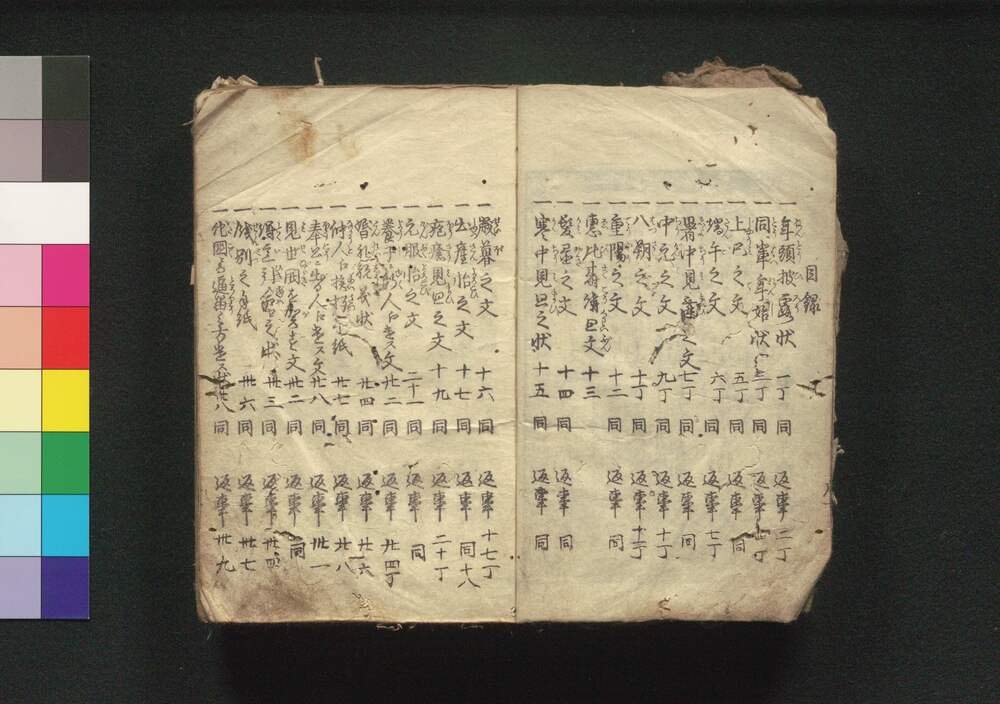 目録
一年頭披露状 一丁 同 返事 二丁
一同輩年始状 三丁 同 返事 丁
一上巳之文 五丁 同 返事 同
一端午之文 六丁 同 返事 七丁
一暑中見舞之文 七丁 同 返事 同
一中元之文 九丁 同 返事 十丁
一八朔之文 十丁 同 返事 十一丁
一重陽之文 十二 同 返事 同
一恵比寿講之文 十三
一髪置之文 十四 同 返事 同
一寒中見廻之状 十五 同 返事 同
一歳暮之文 十六 同 返事 十七丁
一出産怡之文 十七 同 返事 同十八
一疱瘡見廻之文 十九 同 返事 二十丁
一元服怡之文 二十一 同 返事 同
一養子 人 文 廿二 同 返事 廿四丁
一婚礼祝義状 廿四 同 返事 廿六
一仲人 挨拶 手紙 廿七 同 返事 廿八
一奉公 人 文 廿八 同 返事 卅一
一見世 文 卅二 同 返事 同
一状 卅三 同 返事 卅四
一餞別之手紙 卅六 同 返事 卅七
一他国 卅八 同 返事 卅九